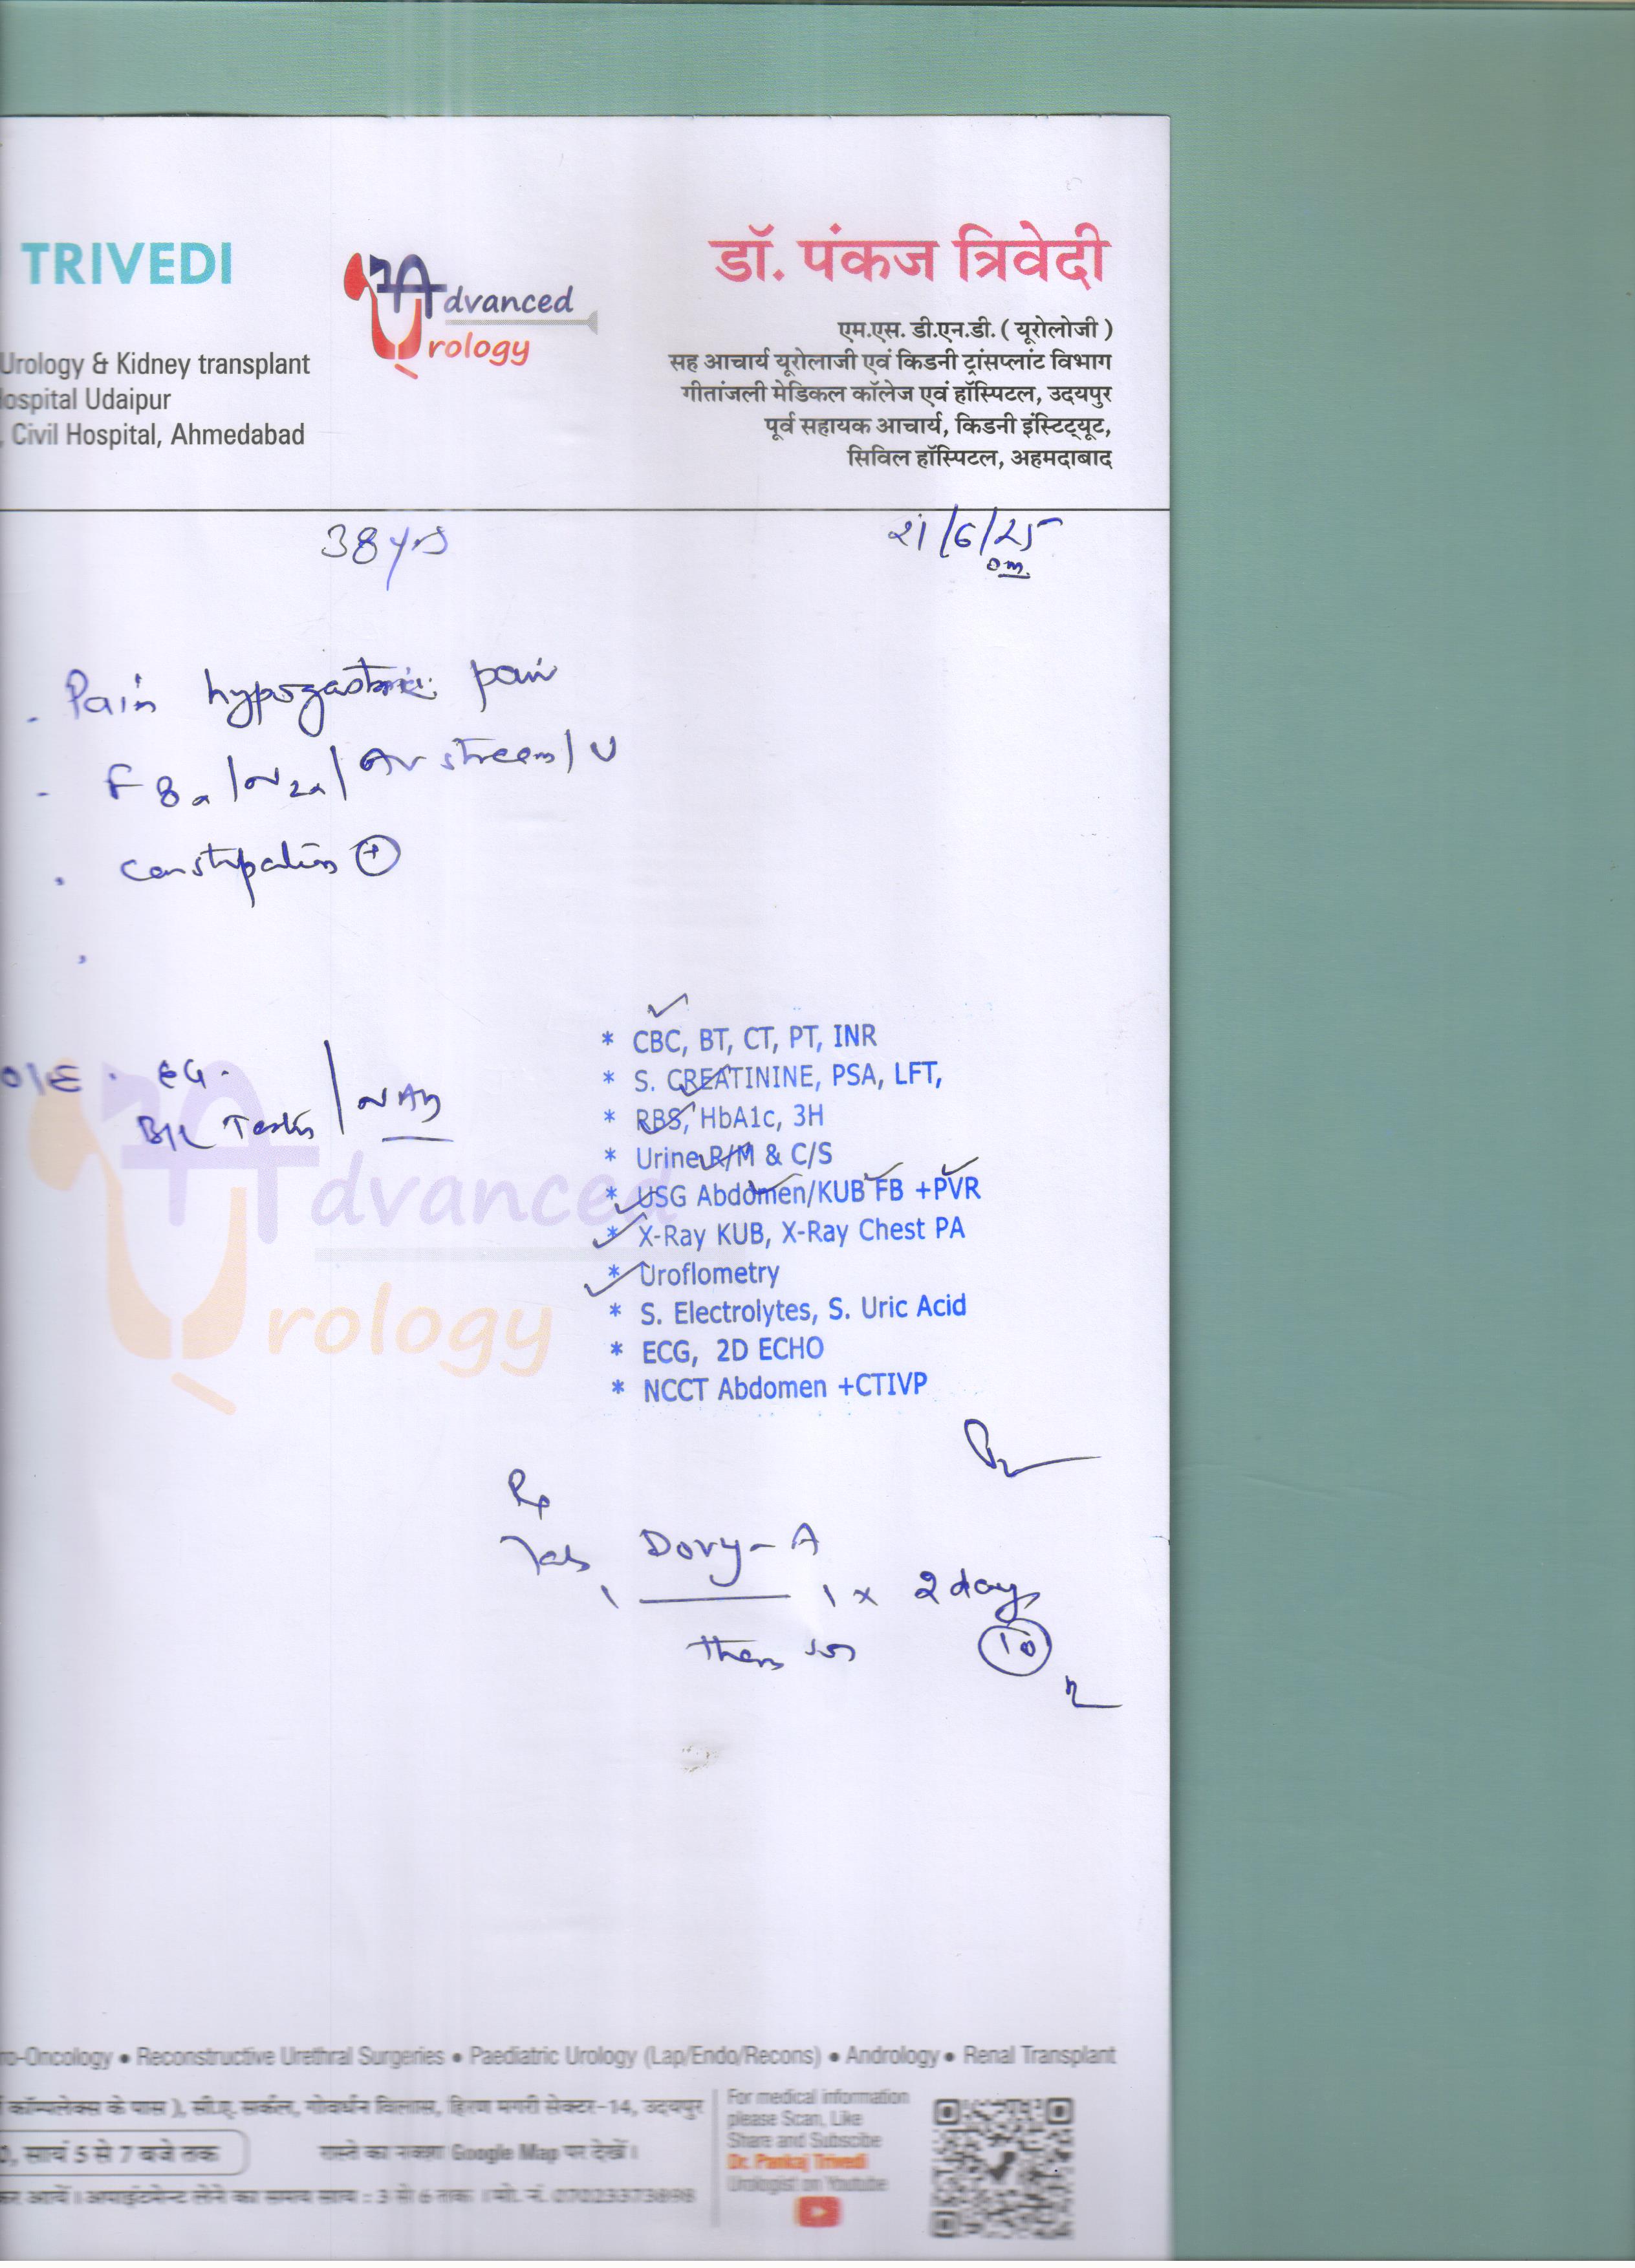 TRIVEDI
Advanced
Urology
डॉ. पंकज त्रिवेदी
एम.एस. डी.एन.डी. ( यूरोलोजी )
सह आचार्य यूरोलाजी एवं किडनी ट्रांसप्लांट विभाग
गीतांजली मेडिकल कॉलेज एवं हॉस्पिटल, उदयपुर
पूर्व सहायक आचार्य, किडनी इंस्टिट्यूट,
सिविल हॉस्पिटल, अहमदाबाद
Urology & Kidney transplant
Hospital Udaipur
, Civil Hospital, Ahmedabad
38 yrs
21/6/25
- Pain hypogastric pain
- Av stream / U
. Constipation +
O/E . EG.
B/L Testis NAD
* CBC, BT, CT, PT, INR
* S. CREATININE, PSA, LFT,
* RBS, HbA1c, 3H
* Urine R/M & C/S
* USG Abdomen/KUB FB +PVR
* X-Ray KUB, X-Ray Chest PA
* Uroflometry
* S. Electrolytes, S. Uric Acid
* ECG, 2D ECHO
* NCCT Abdomen +CTIVP
Advanced
Urology
Tab Dovy-A
1 ——— 1 x 2 day
then sos 10
ro-Oncology • Reconstructive Urethral Surgeries • Paediatric Urology (Lap/Endo/Recons) • Andrology • Renal Transplant
कॉम्पलेक्स के पास ), सी.ए. सर्कल, गोवर्धन विलास, हिरण मगरी सेक्टर-14, उदयपुर
0, सायं 5 से 7 बजे तक
रास्ते का नक्शा Google Map पर देखें।
कर आयें। अपाइंटमेन्ट लेने का समय सायं : 3 से 6 तक
For medical information
please Scan, Like
Share and Subscibe
Dr. Pankaj Trivedi
Urologist on Youtube